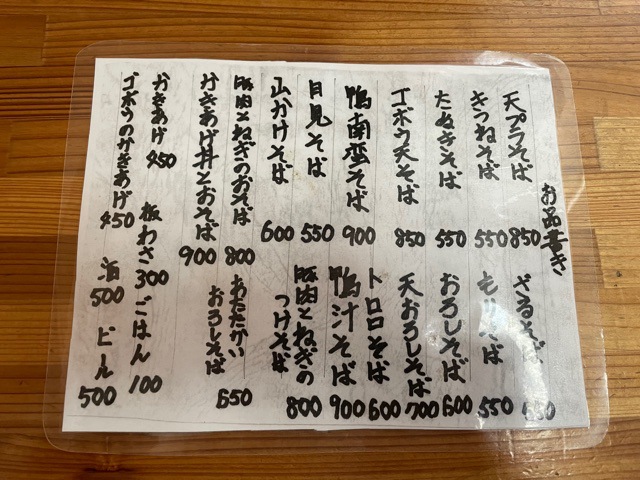 お品書き
天プラそば 850
きつねそば 550
たぬきそば 550
ゴボウ天そば 850
鴨南蛮そば 900
月見そば 550
山かけそば 600
豚肉とねぎのおそば 800
かきあげ丼とおそば 900
かきあげ 450
ゴボウのかきあげ 450
ざるそば
もりそば 550
おろしそば 600
天おろしそば 700
トロロそば 600
鴨汁そば 900
豚肉とねぎの
つけそば 800
あたたかい
おろしそば 650
板わさ 300
ごはん 100
酒 500
ビール 500